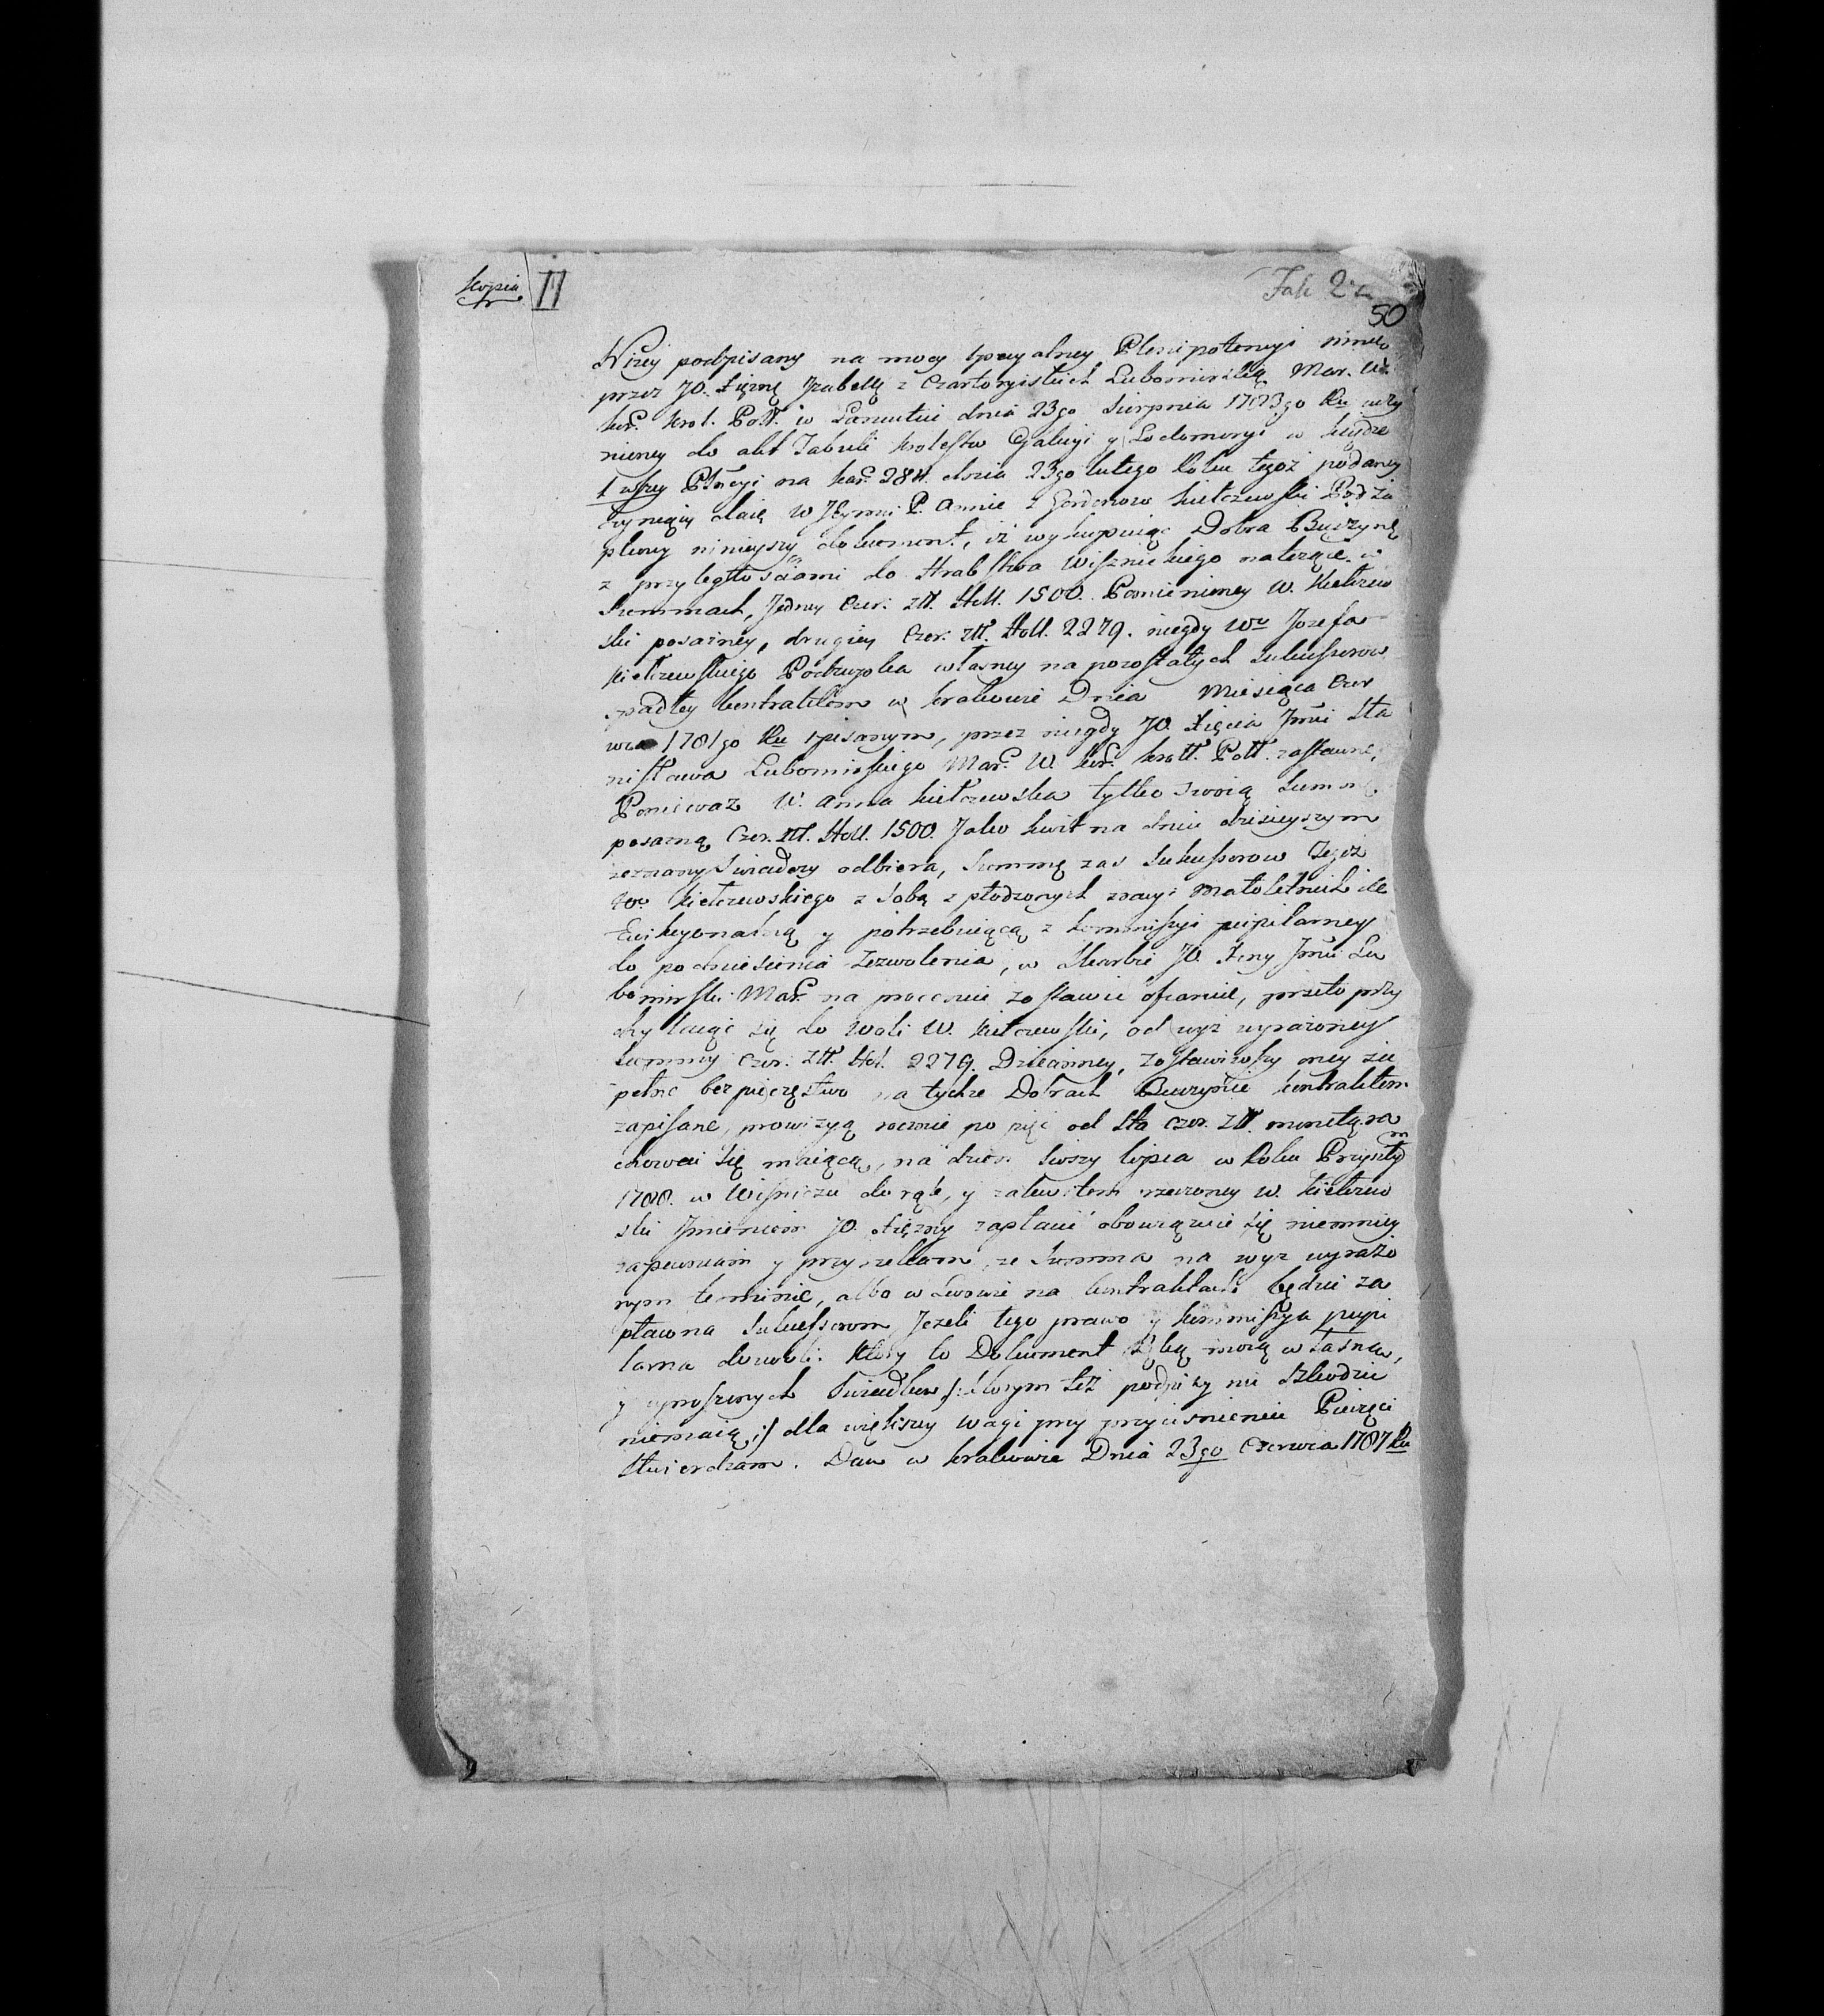 Kopia II
Fasc 2
50
Niżey podpisany na mocy specyalney Plenipotencyi
przez JO. Xiężnę Izabellę z Czartoryiskich Lubomirską Mar.
Kor. Krol. Poll. w Łancutu dnia 23go Sierpnia 1783go Ru uczy
nioney do akt Tabuli Krolestw Galicyi y Lodomeryi w księdze
na kar. 284. dnia 23go lutego Roku tegoż podaney
czynię daię W JPani P. Annie z Gordonow Kiełczewski Podżu
pkowy ninieyszy dokument, iż wykupuiąc Dobra Buczynę
z przyległościami do Hrabstwa Wisznickiego należące w
Summach, Jedney Czer. Złł. Holl. 1500. Pomienioney W. Kiełczew
ski posażney, drugiey Czer. Złł. Holl. 2279. niegdy Wo Jozefa
Kiełczewskiego Podżupka własney na pozostałych Sukcessorow
spadłey kontraktem w Krakowie Dnia Miesiąca Czer
wca 1781go Ru spisanym, przez niegdy JO. Xięcia Jmci Sta
nisława Lubomirskiego Mar. W. Kor. Kroll. Poll. zastawne,
Ponieważ W. Anna Kiełczewska tylko swoią Summę
posażną Czer. Złł. Holl. 1500. Jako kwit na dniu dzisieyszym
zeznany świadczy odbiera, Summę zas Sukcessorow Tegoż
Wo Kiełczewskiego z Sobą z płodzonych małoletnich ile
Ewikcyonalną y potrzebuiącą z kommissyi pupilarney
do podniesienia Zezwolenia, w Skarbie JO. Xżny Jmci Lu
bomirski Mar. na procencie zostawić ofiaruie, przeto przy
chylaiąc się do woli W. Kiełczewski, od wyż wyrażoney
Summy Czer. Złł. Hol. 2279. Dziecinney, zostawiwszy oney zu
pełne bezpieczęstwo na tychże Dobrach Buczynie kontraktem
zapisane, prowizyą rocznie po pięc od Sta Czer. Złł. monetą ra
chować się maiącą, na dzien Lipca w Roku Przyszłym
1788. w Wiśniczu do rąk, y za kwitem rzeczoney W. Kiełczew
ski Imieniem JO. Xiężny zapłacić obowiązuie się niemniey
zapewniam y przyrzekam, ze Summa na wyz wyrażo
nym terminie, albo w Lwowie na kontraktach będzie za
płacona Sukcessorom, Jezeli tego prawo y kommissya pupi
larna dozwoli. Ktory to Dokument ręką moią własną,
y uproszonych Swiadkow /: ktorym też podpisy ni szkodzić
niemaią :/ dla większey wagi przy przycisnieniu Pieczęci
stwierdzam. Dan w Krakowie Dnia 23go Czerwca 1787 Ru